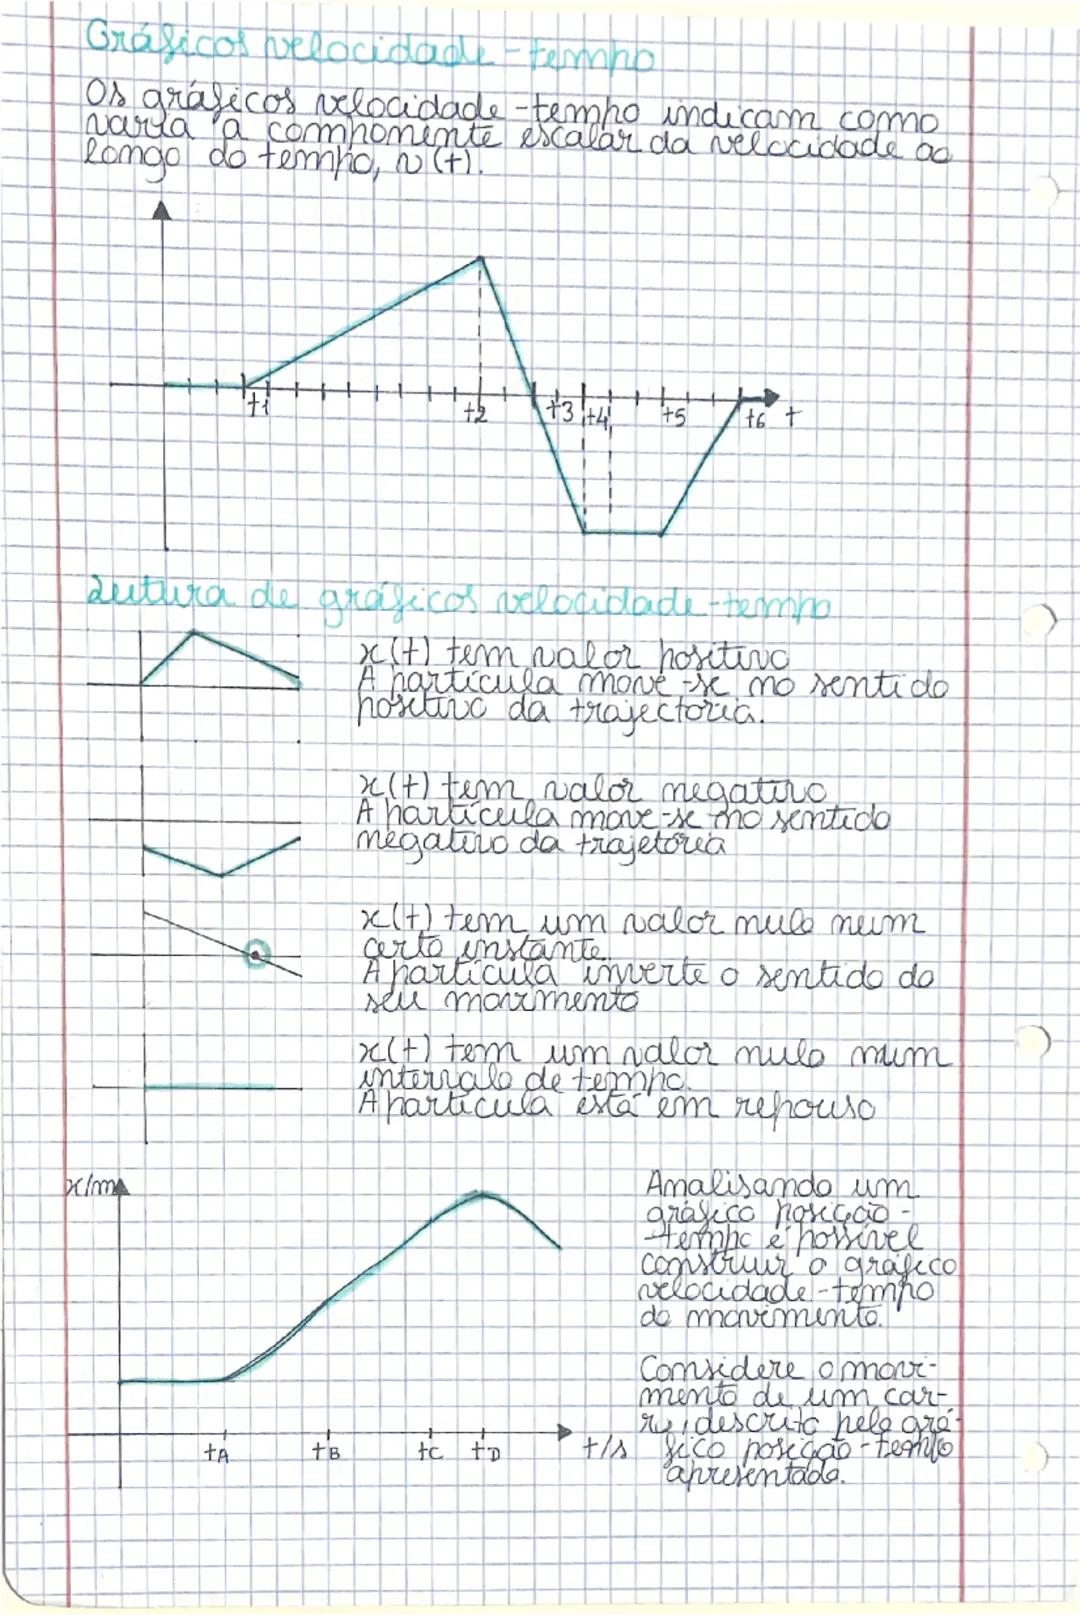 Gráficos velocidade-tempo
Os gráficos velocidade-tempo indicam como
varia a componente escalar da velocidade ao
longo do tempo, v(t).
t1
t2
t3
t4
t5
t6
t
Leitura de gráficos velocidade-tempo
x(t) tem valor positivo
A partícula move-se no sentido
positivo da trajectória.
x(t) tem valor negativo
A partícula move-se no sentido
negativo da trajetória
x(t) tem um valor nulo num
certo instante.
A partícula inverte o sentido do
seu movimento
x(t) tem um valor nulo num
intervalo de tempo.
A partícula está em repouso
x/m
tA
tB
tC
tD
t/s
Analisando um
gráfico posição-
tempo é possível
construir o gráfico
velocidade-tempo
do movimento.
Considere o movi-
mento de um car-
ro, descrito pelo grá-
fico posição-tempo
apresentado.